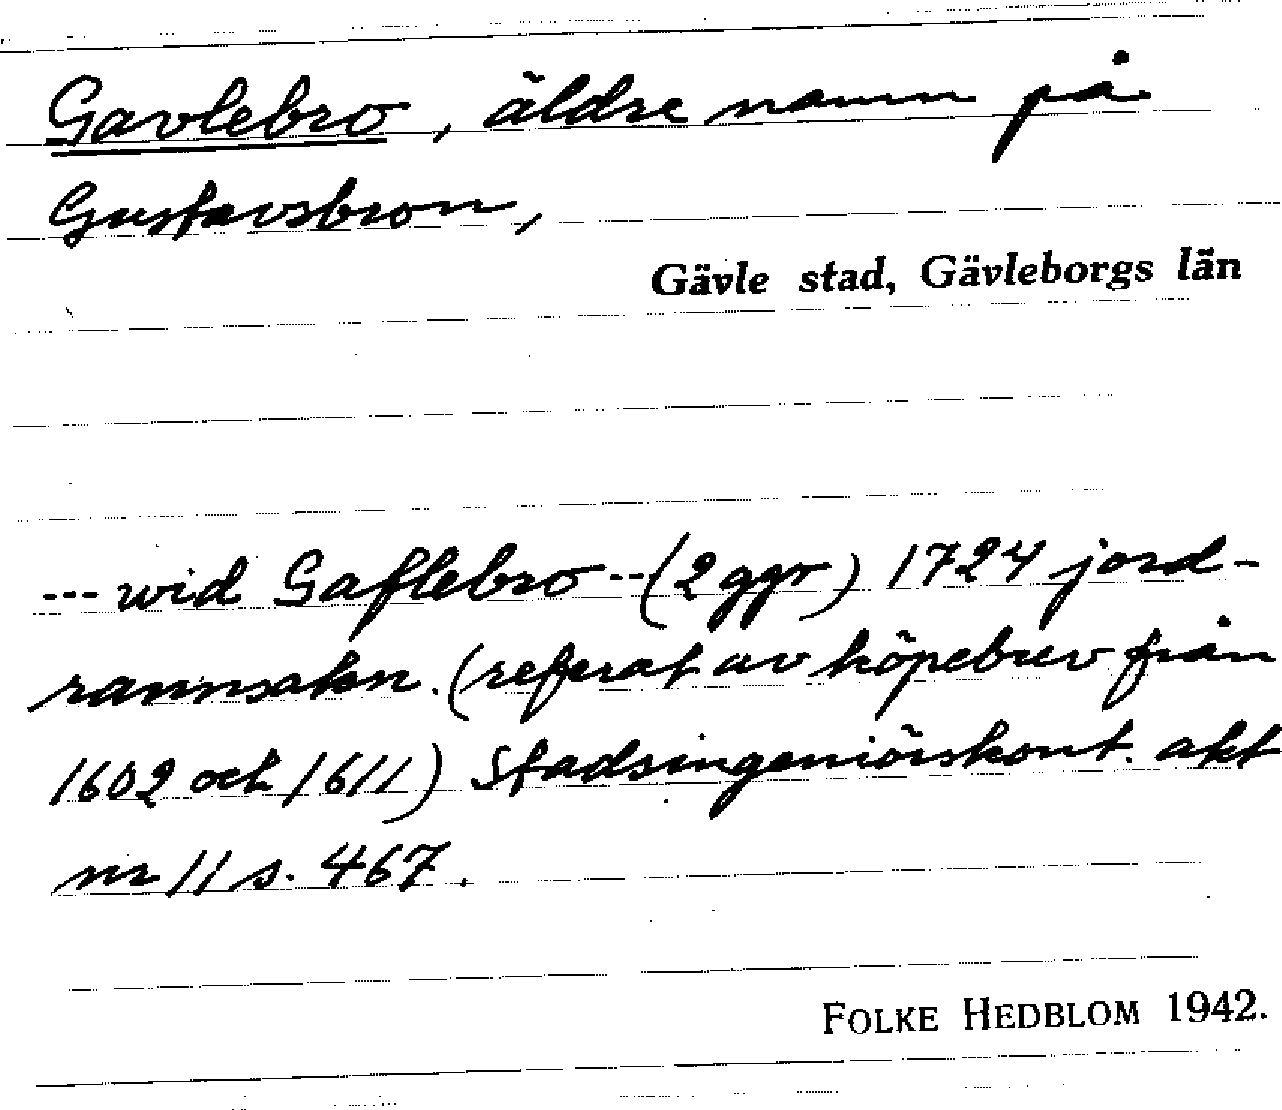 Gavlebro, äldre namn på
Gustavsbron,
Gävle stad, Gävleborgs län
--- wid Gaflebro -- (2 ggr) 1724 jord-
rannsakn. (referat av köpebrev från
1602 och 1611) Stadsingeniörskont. akt
nr 11 s. 467.
FOLKE HEDBLOM 1942.